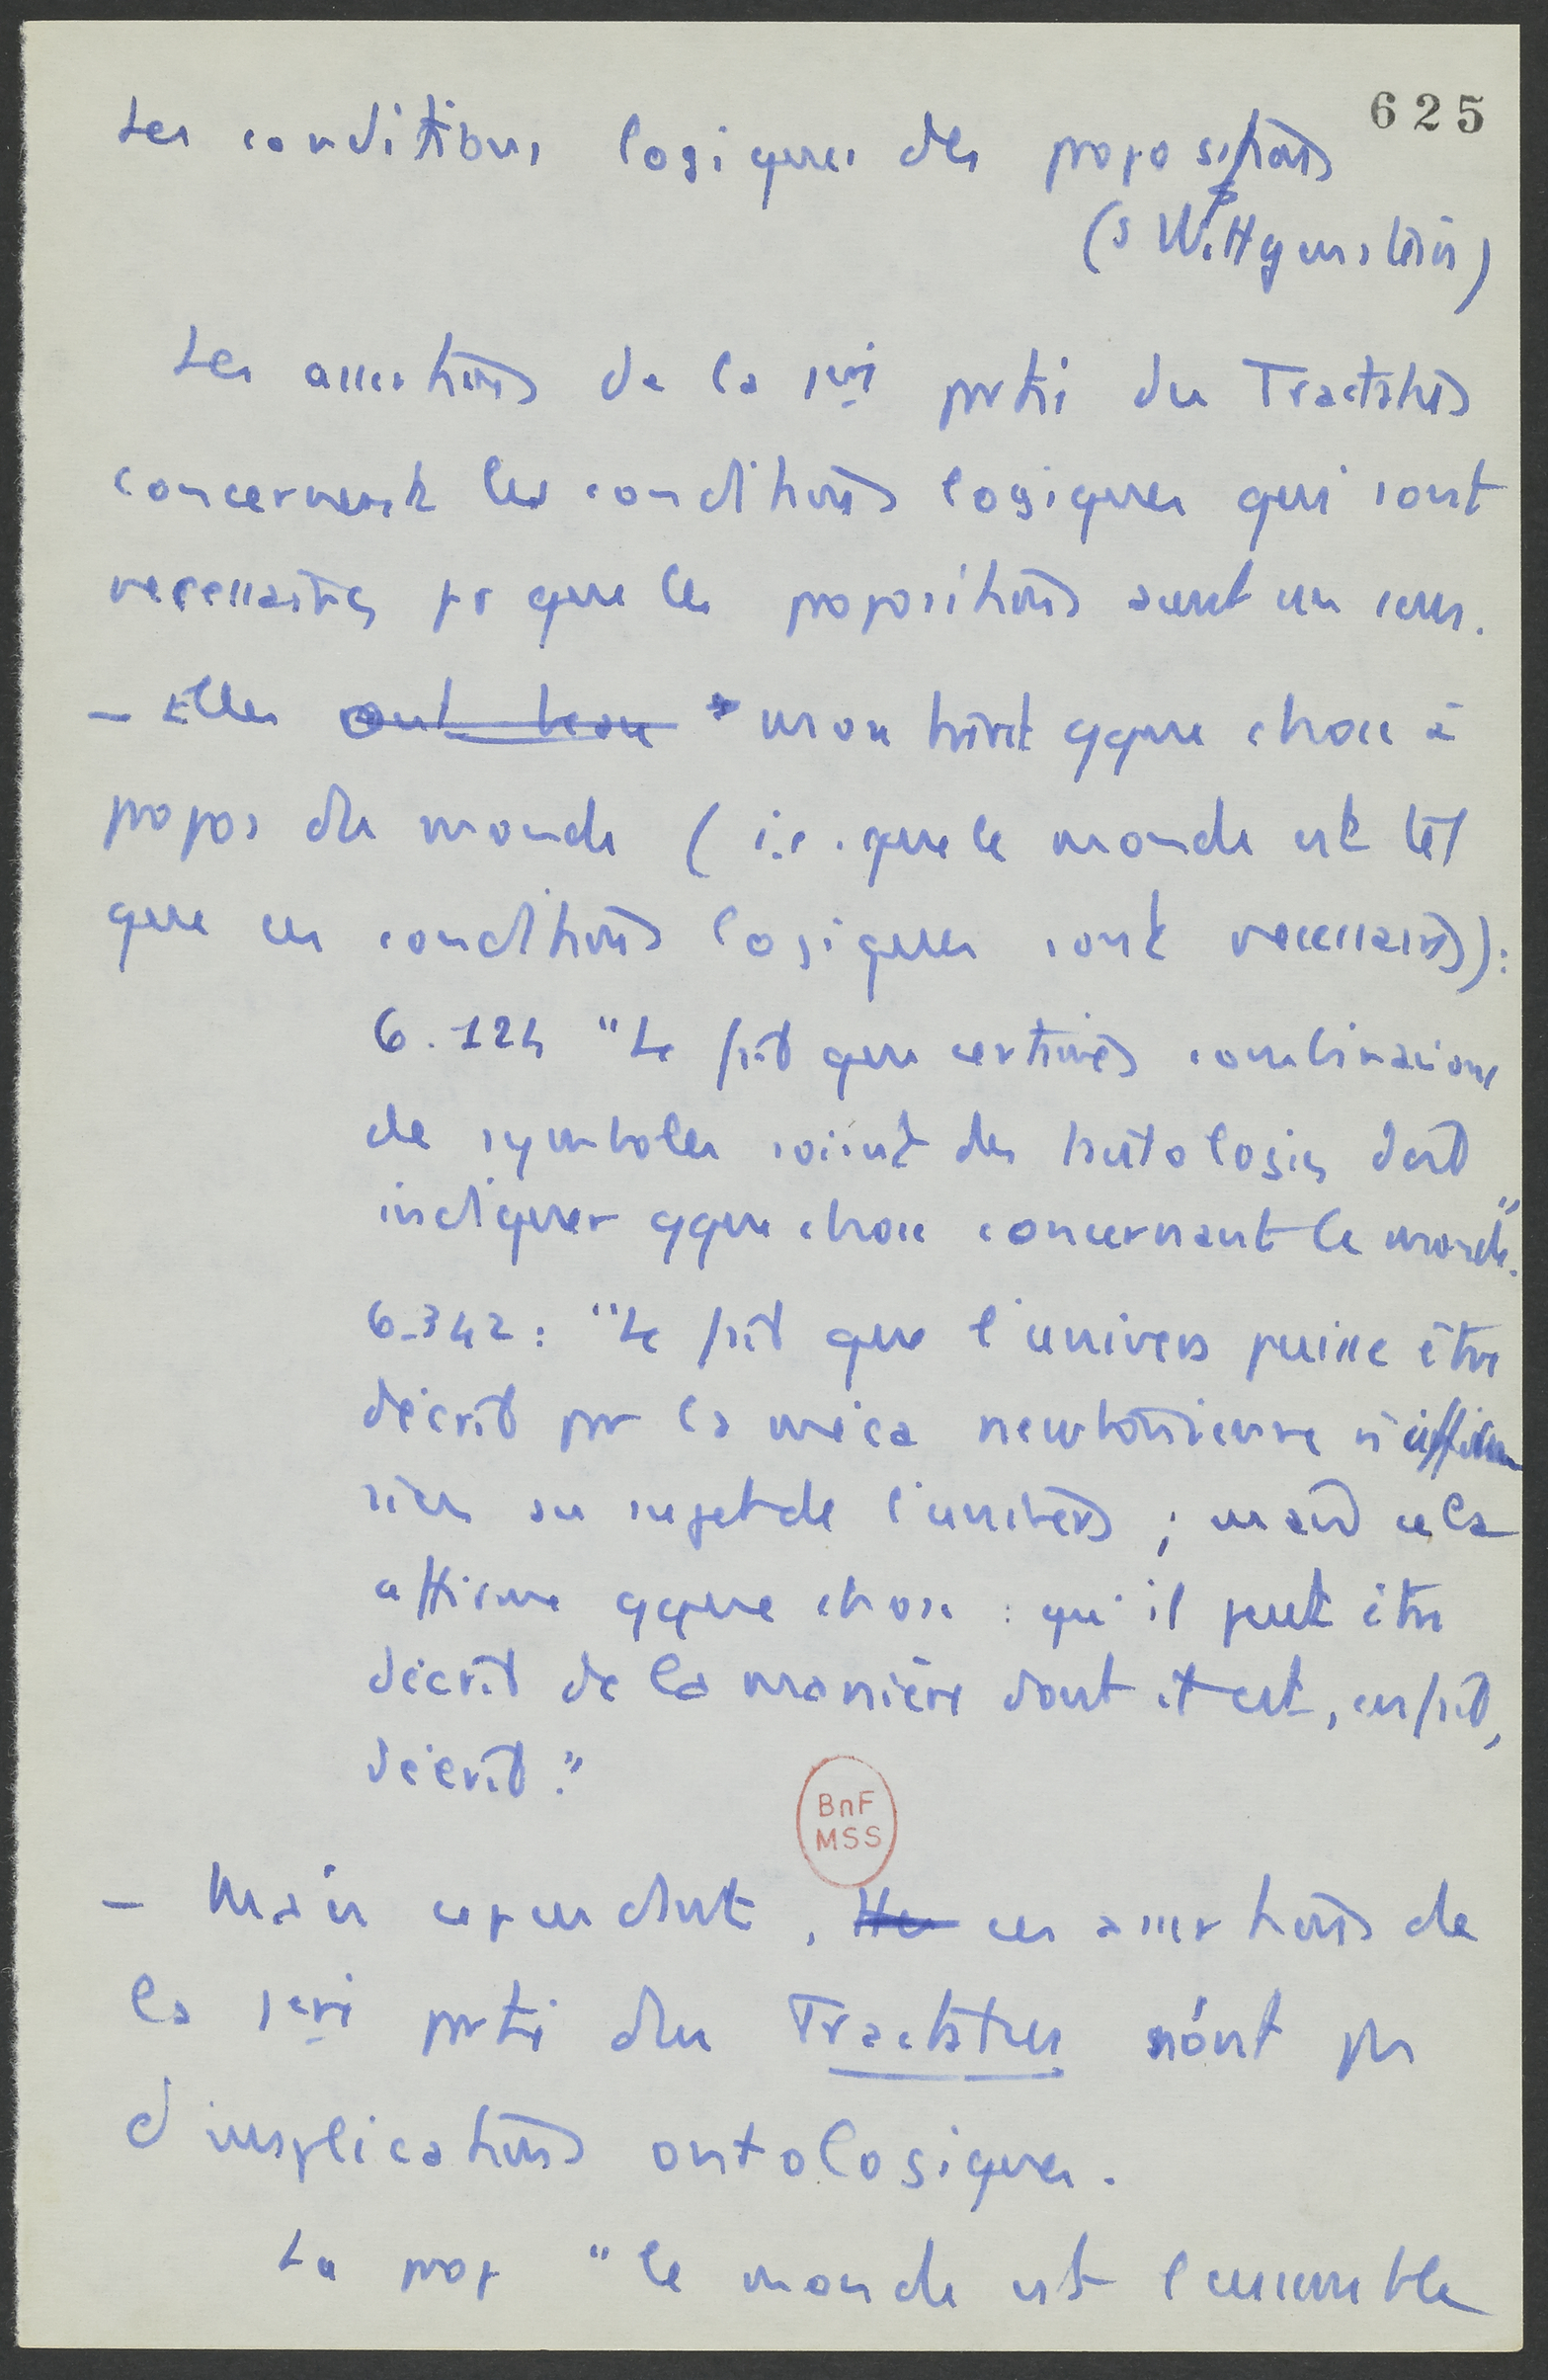 625
Les conditions logiques des propositions
(s Wittgenstein)
Les assertions de la 1ère partie du Tractatus
concernent les conditions logiques qui sont
necessaires pr que les propositions aient un sens.
– Elles montrent qque chose à
propos du monde (i.e. que le monde est tel
que ces conditions logiques sont necessaires):
6.124 "Le fait que certaines combinaisons
de symboles soient des tautologies doit
indiquer qque chose concernant le monde."
6.342: "Le fait que l'univers puisse être
décrit par la méca newtonienne n'affirme
rien au sujet de l'univers ; mais cela
affirme qque chose : qu'il peut être
décrit de la manière dont il est, en fait,
décrit."
BnF
MSS
– Mais cependant, ces assertions de
la 1ère partie du Tractatus n'ont pas
d'implications ontologiques.
La prop "le monde est l'ensemble